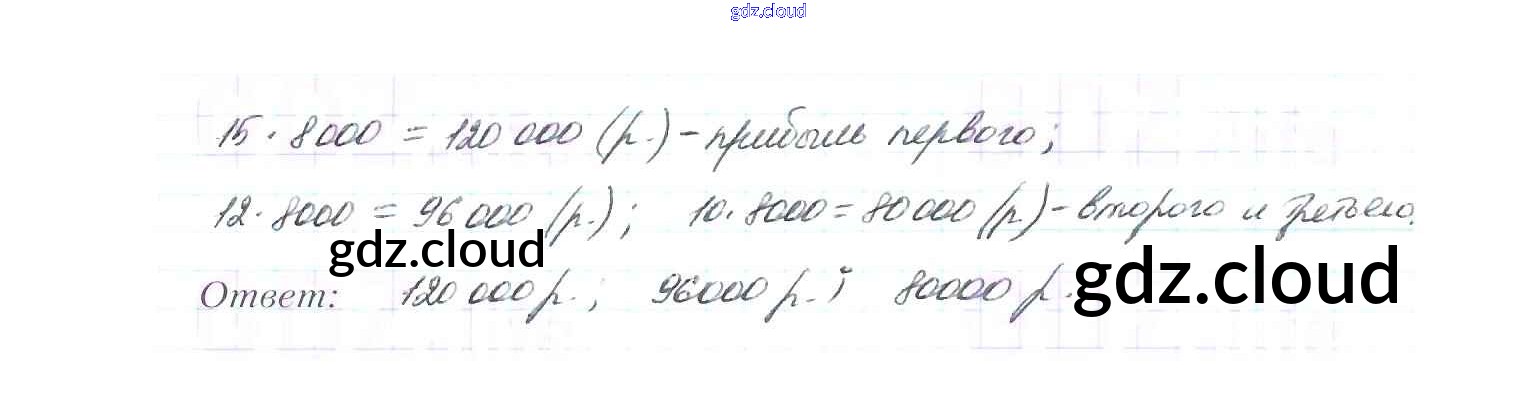 gdz.cloud
15 · 8000 = 120 000 (р.) - прибыль первого;
12 · 8000 = 96 000 (р.); 10 · 8000 = 80 000 (р) - второго и третьего.
gdz.cloud
gdz.cloud
Ответ: 120 000 р.; 96000 р.; 80000 р.